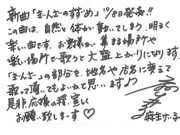 新曲「まんなおのすすめ」10/8日発売!!
この曲は、自然と体が動いてしまう、明るく
楽しい曲です。お客様が集まる場所や
楽しい場所で歌うと大盛り上がりになります。
「まんなお」の部分を、地名や店名に変えて
歌って頂いてもよいかと思います♪
是非応援の程、宜しく
お願い致します♡